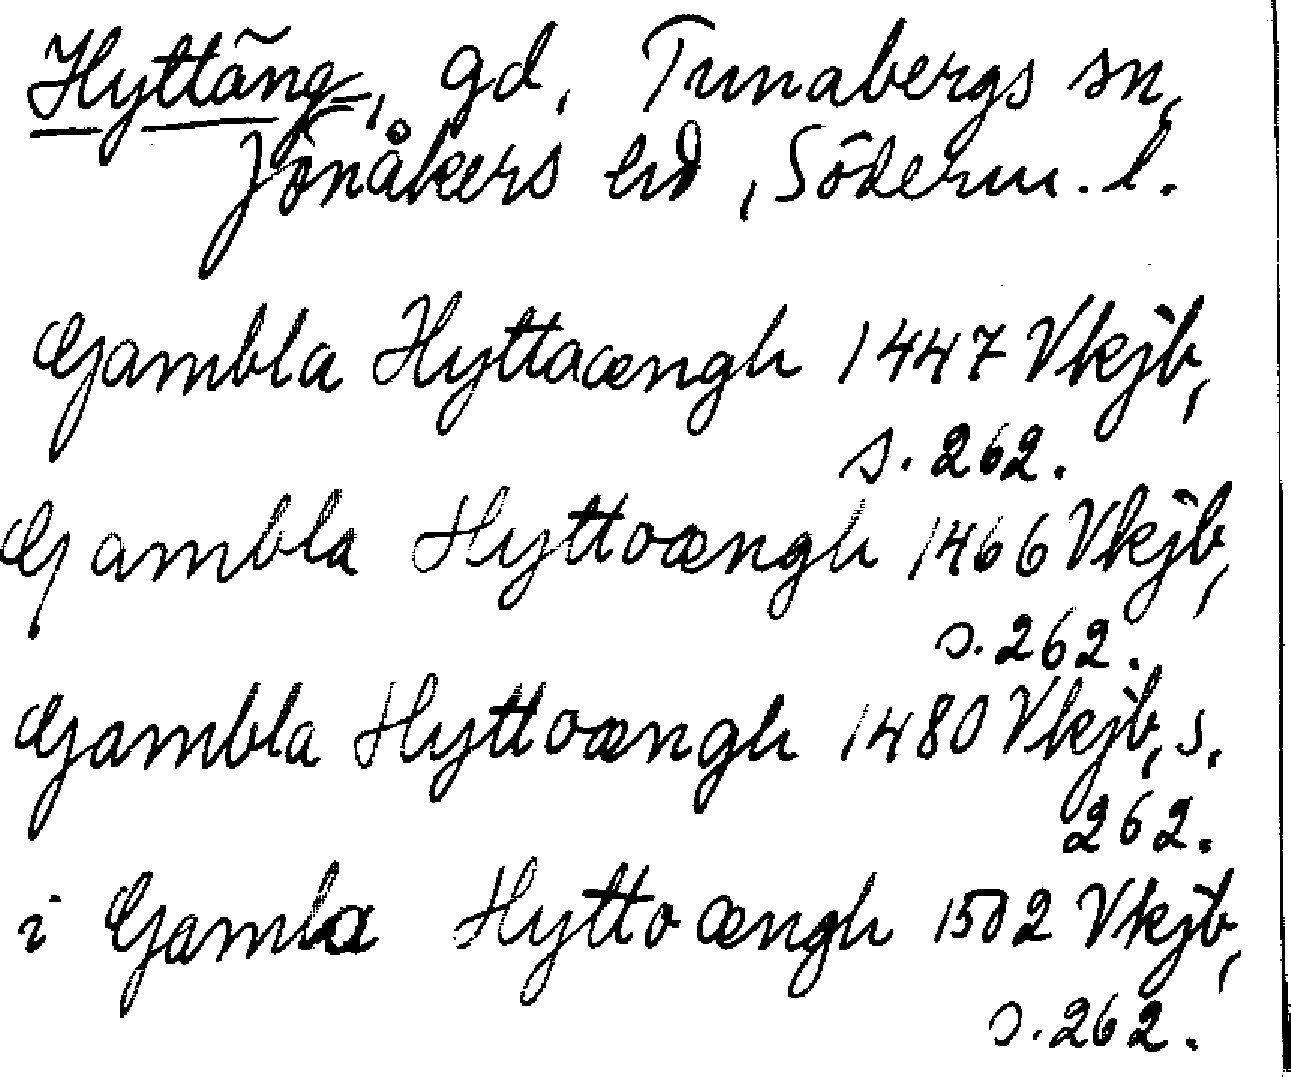 Hyttäng, gd, Tunabergs sn,
Jönåkers hd, Söderm. l.
Gambla Hyttaængh 1447 Vkjb,
s. 262.
Gambla Hyttoængh 1466 Vkjb,
s. 262.
Gambla Hyttoængh 1480 Vkjb, s.
262.
i Gamla Hytto ængh 1502 Vkjb,
s. 262.